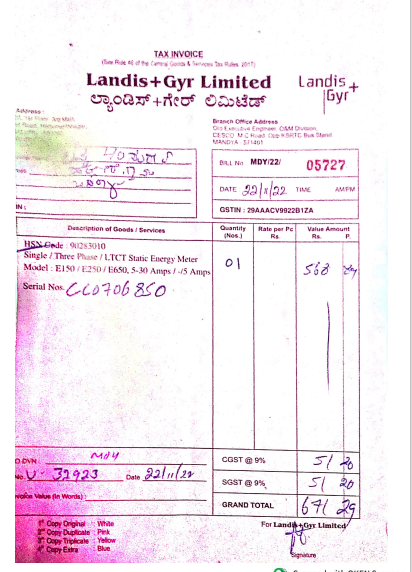 TAX INVOICE
(See Rule 46 of the Central Goods & Services Tax Rules, 2017)
Landis+Gyr Limited
ಲ್ಯಾಂಡಿಸ್+ಗೇರ್ ಲಿಮಿಟೆಡ್
Landis+
Gyr
Address :
Branch Office Address
O/o Executive Engineer, O&M Division,
CESCO, M C Road, Opp KSRTC Bus Stand,
MANDYA - 571401
BILL No MDY/22/ 05727
DATE 22/11/22 TIME AM/PM
GSTIN : 29AAACV9922B1ZA
Description of Goods / Services
Quantity (Nos.)
Rate per Pc Rs.
Value Amount Rs. P.
HSN Code : 90283010
Single / Three Phase / LTCT Static Energy Meter
Model : E150 / E250 / E650, 5-30 Amps / -/5 Amps
01
568
Serial Nos. CC0706850
DVN : MDY
CGST @ 9% 51 20
No. U- 32923 Date 22/11/22
SGST @ 9% 51 20
Value (In Words) :
GRAND TOTAL 671 29
1st Copy Original : White
2nd Copy Duplicate : Pink
3rd Copy Triplicate : Yellow
4th Copy Extra : Blue
For Landis+Gyr Limited
Signature